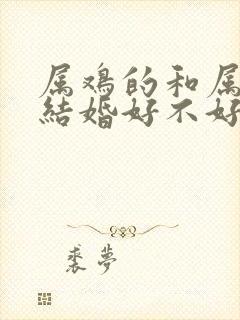 属鸡的和属
结婚好不好
裘梦